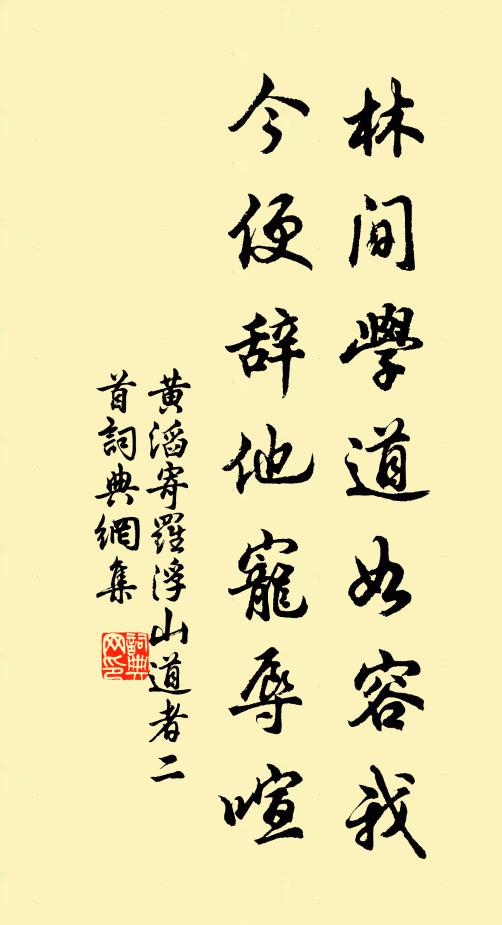 林間學道如容我
今便辞他寵辱喧
黄滔寄羅浮山道者二
首詞典網集
詞典
网印